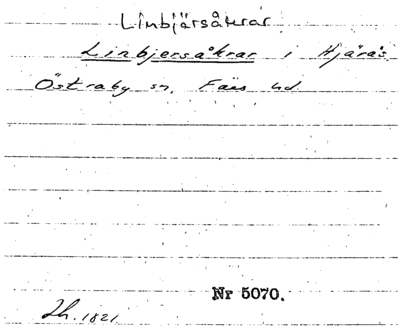 Linbjärsåkrar
Linbjersåkrar i Hjärås
Östraby sn, Färs hd
Nr 5070.
Lh. 1821